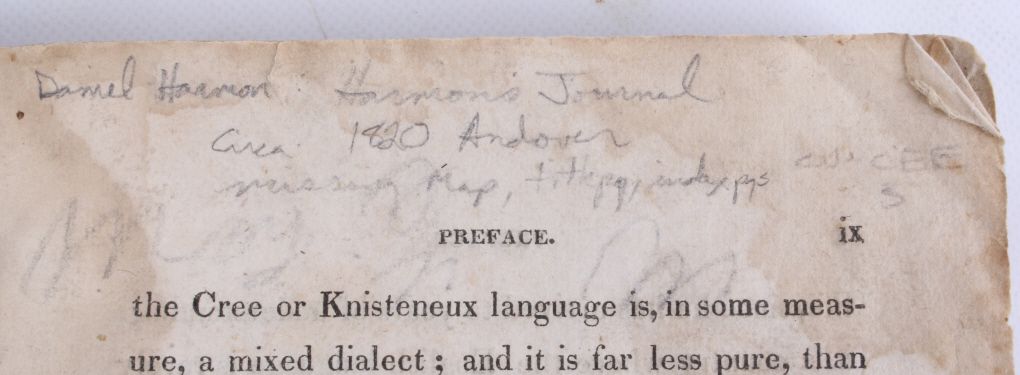 Daniel Harmon Harmon's Journal
Circa 1820 Andover
missing Map, titlepg, index pgs
CEE
PREFACE. ix
the Cree or Knisteneux language is, in some meas-
ure, a mixed dialect ; and it is far less pure, than